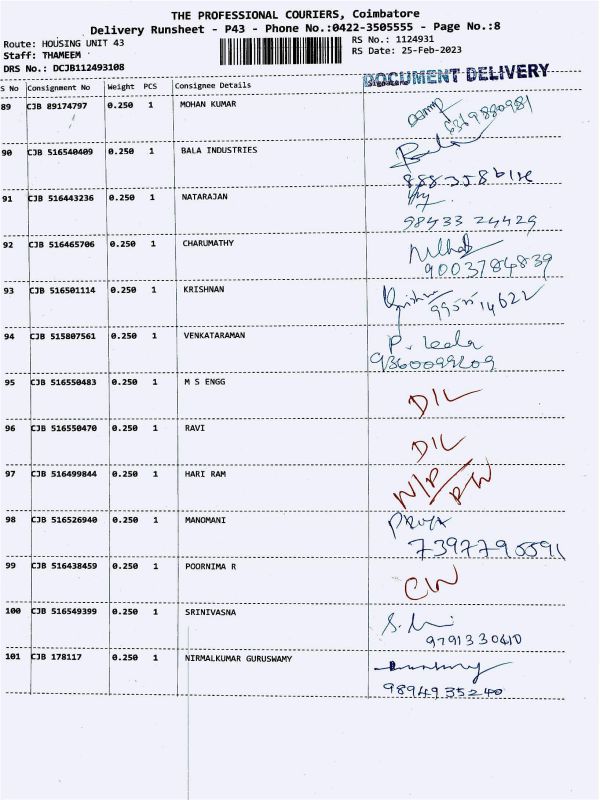 THE PROFESSIONAL COURIERS, Coimbatore
Delivery Runsheet - P43 - Phone No.:0422-3505555 - Page No.:8
Route: HOUSING UNIT 43
RS No.: 1124931
Staff: THAMEEM
RS Date: 25-Feb-2023
DRS No.: DCJB112493108
DOCUMENT DELIVERY
S No Consignment No Weight PCS Consignee Details
89 CJB 89174797 0.250 1 MOHAN KUMAR
6369880981
90 CJB 516540409 0.250 1 BALA INDUSTRIES
Bala
91 CJB 516443236 0.250 1 NATARAJAN
98433 24429
92 CJB 516465706 0.250 1 CHARUMATHY
9003784839
93 CJB 516501114 0.250 1 KRISHNAN
94 CJB 515807561 0.250 1 VENKATARAMAN
P. Leela
95 CJB 516550483 0.250 1 M S ENGG
D/L
96 CJB 516550470 0.250 1 RAVI
D/L
97 CJB 516499844 0.250 1 HARI RAM
N/P
98 CJB 516526940 0.250 1 MANOMANI
Priya
99 CJB 516438459 0.250 1 POORNIMA R
100 CJB 516549399 0.250 1 SRINIVASNA
9791330410
101 CJB 178117 0.250 1 NIRMALKUMAR GURUSWAMY
9894935240